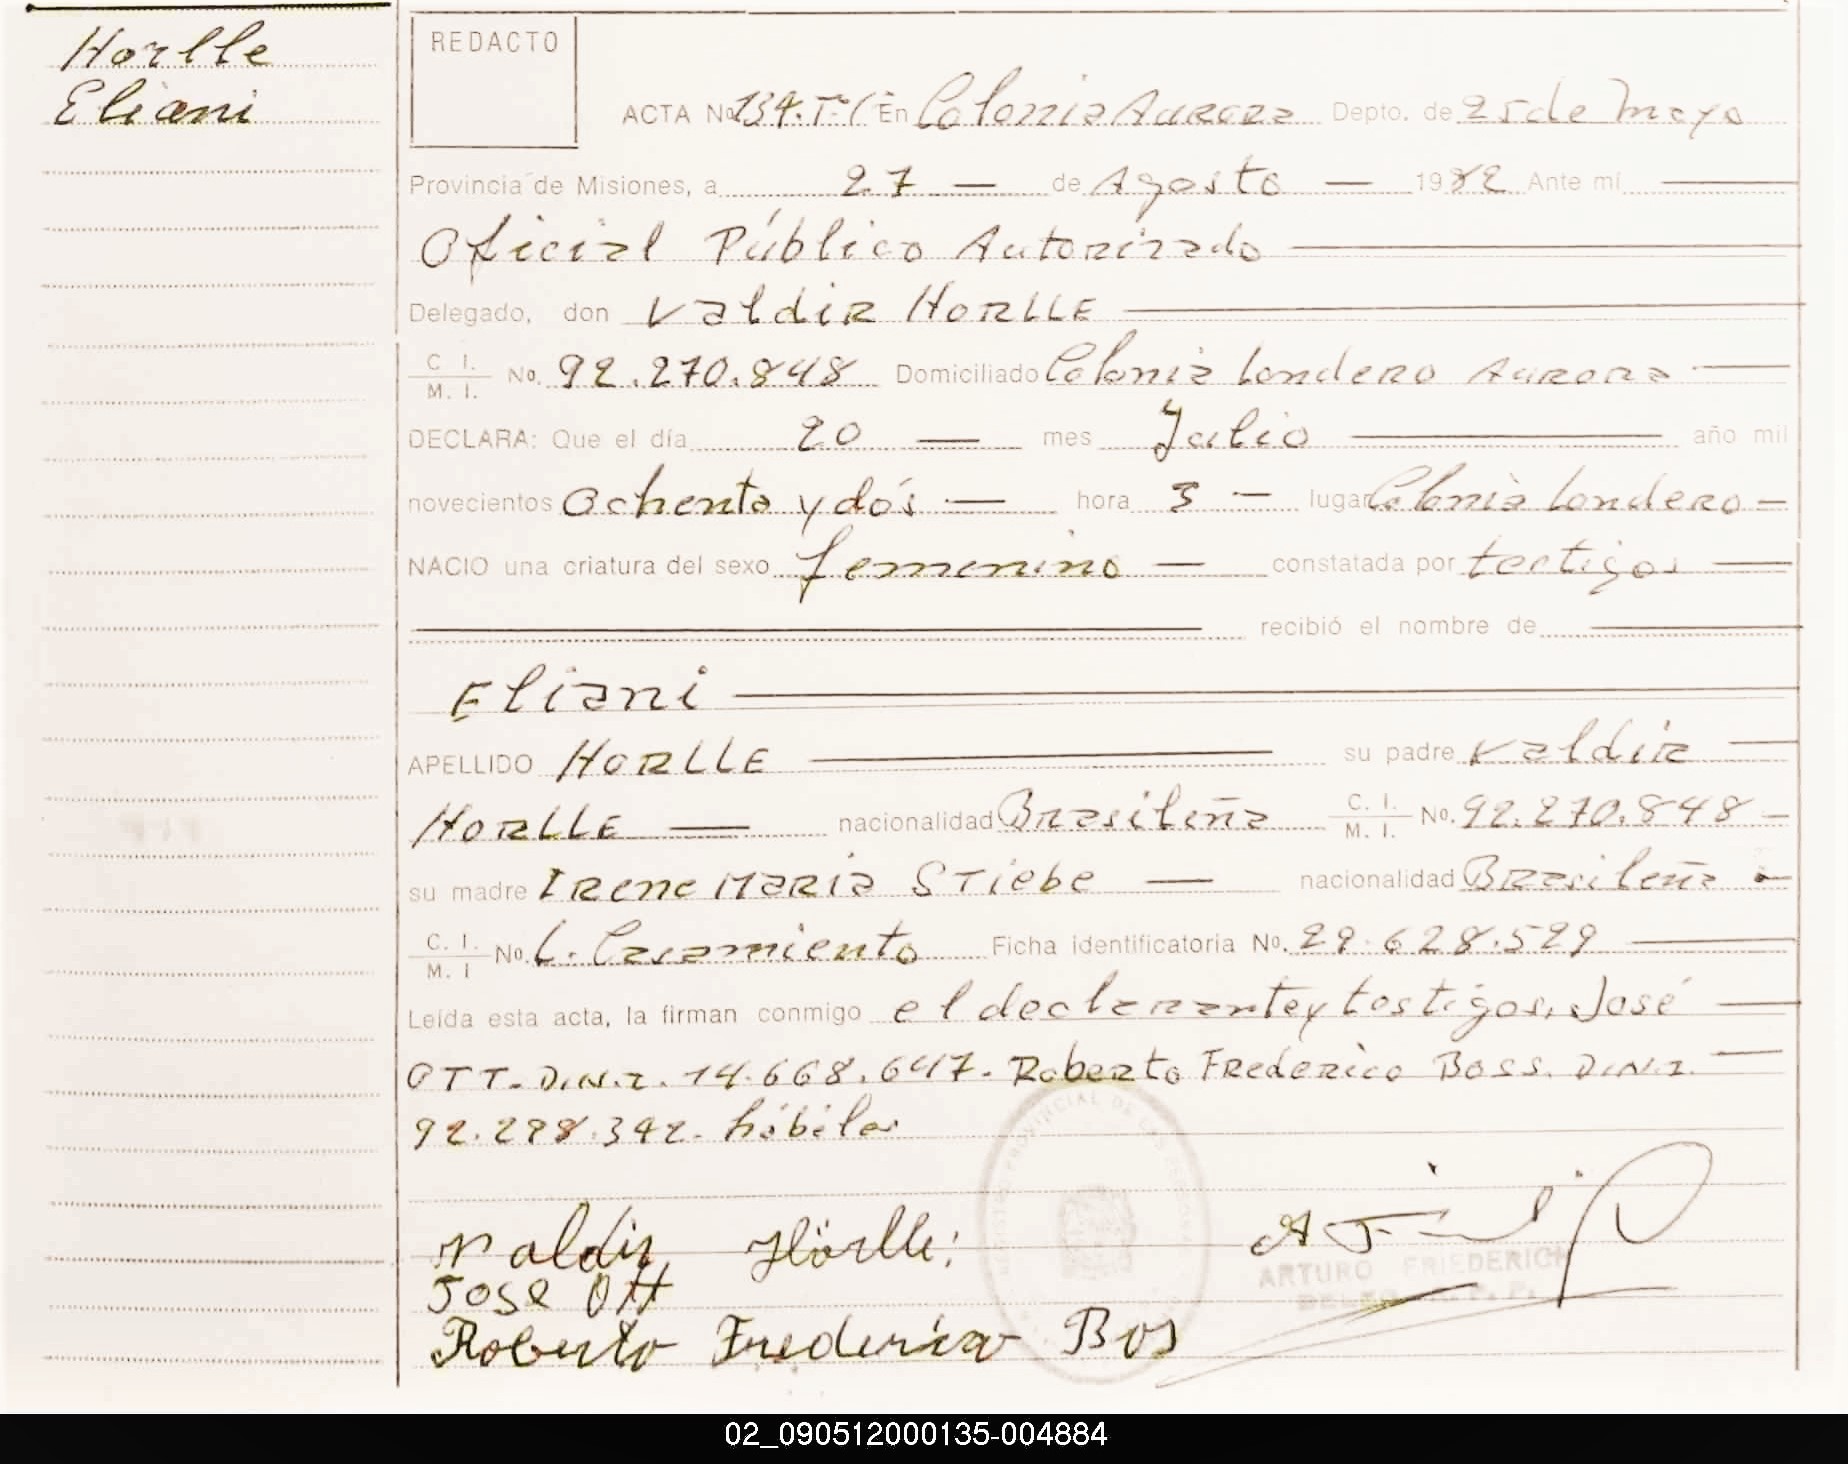 Horlle
Eliani
REDACTO
ACTA No 134. Tº 1º En Colonia Aurora Depto. de 25 de Mayo
Provincia de Misiones, a 27 — de Agosto — 1982 Ante mí —
Oficial Público Autorizado —
Delegado, don Valdir HORLLE —
C. I. / M. I. No. 92.270.848 Domiciliado Colonia Londero Aurora —
DECLARA: Que el día 20 — mes Julio — año mil
novecientos Ochenta y dós — hora 3 — lugar Colonia Londero —
NACIO una criatura del sexo femenino — constatada por testigos —
— recibió el nombre de —
Eliani —
APELLIDO HORLLE — su padre Valdir —
HORLLE — nacionalidad Brasileña C. I. / M. I. No. 92.270.848 —
su madre Irene Maria Stiebe — nacionalidad Brasileña —
C. I. / M. I No. L. Casamiento Ficha identificatoria No. 29.628.529 —
Leída esta acta, la firman conmigo el declarante y testigos, José —
OTT. D.N.I. 14.668.647. Roberto Frederico Boss. D.N.I. —
92.298.342. hábiles
Valdir Hörlle:
Jose Ott
Roberto Frederico Bos
REGISTRO PROVINCIAL DE LAS PERSONAS
ARTURO FRIEDERICH
02_090512000135-004884